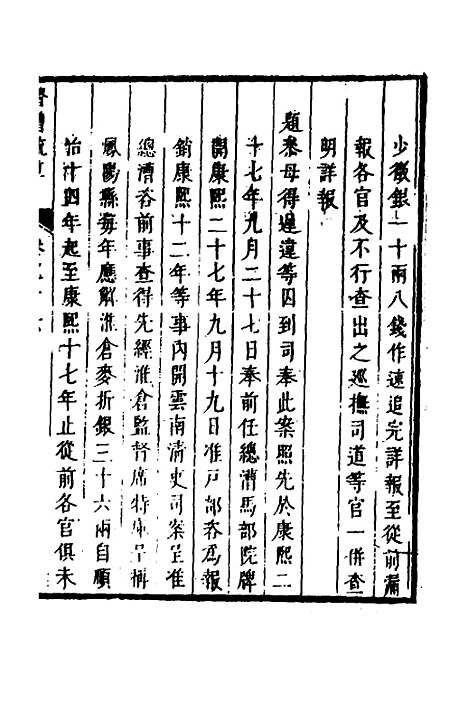 少徵銀一十兩八錢作速追完詳報至從前漏
報各官及不行查出之巡撫司道等官一併查
明詳報
題參毋得遲違等因到司奉此案照先於康熙二
十七年九月二十七日奉前任總漕馬部院牌
開康熙二十七年九月十九日准戸部咨為報
銷康熙十二年等事內開雲南清吏司案呈准
總漕咨前事查得先經淮倉監督席特庫呈稱
鳳陽縣每年應解淮倉麥折銀三十六兩自順
治十四年起至康熙十七年止從前各官俱未